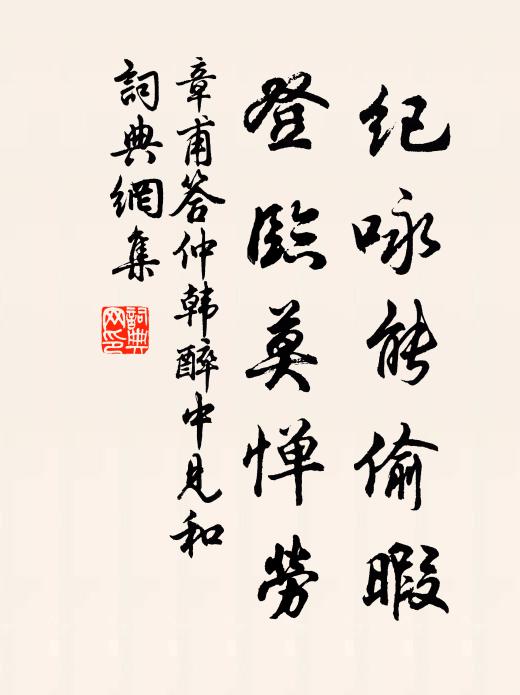 纪咏能偷暇
登临莫惮劳
章甫答仲韩醉中见和
词典網集
詞典網印